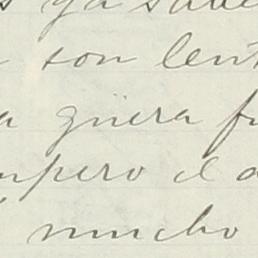 ya sabe
son lent
güera fu
mpero el a
mucho